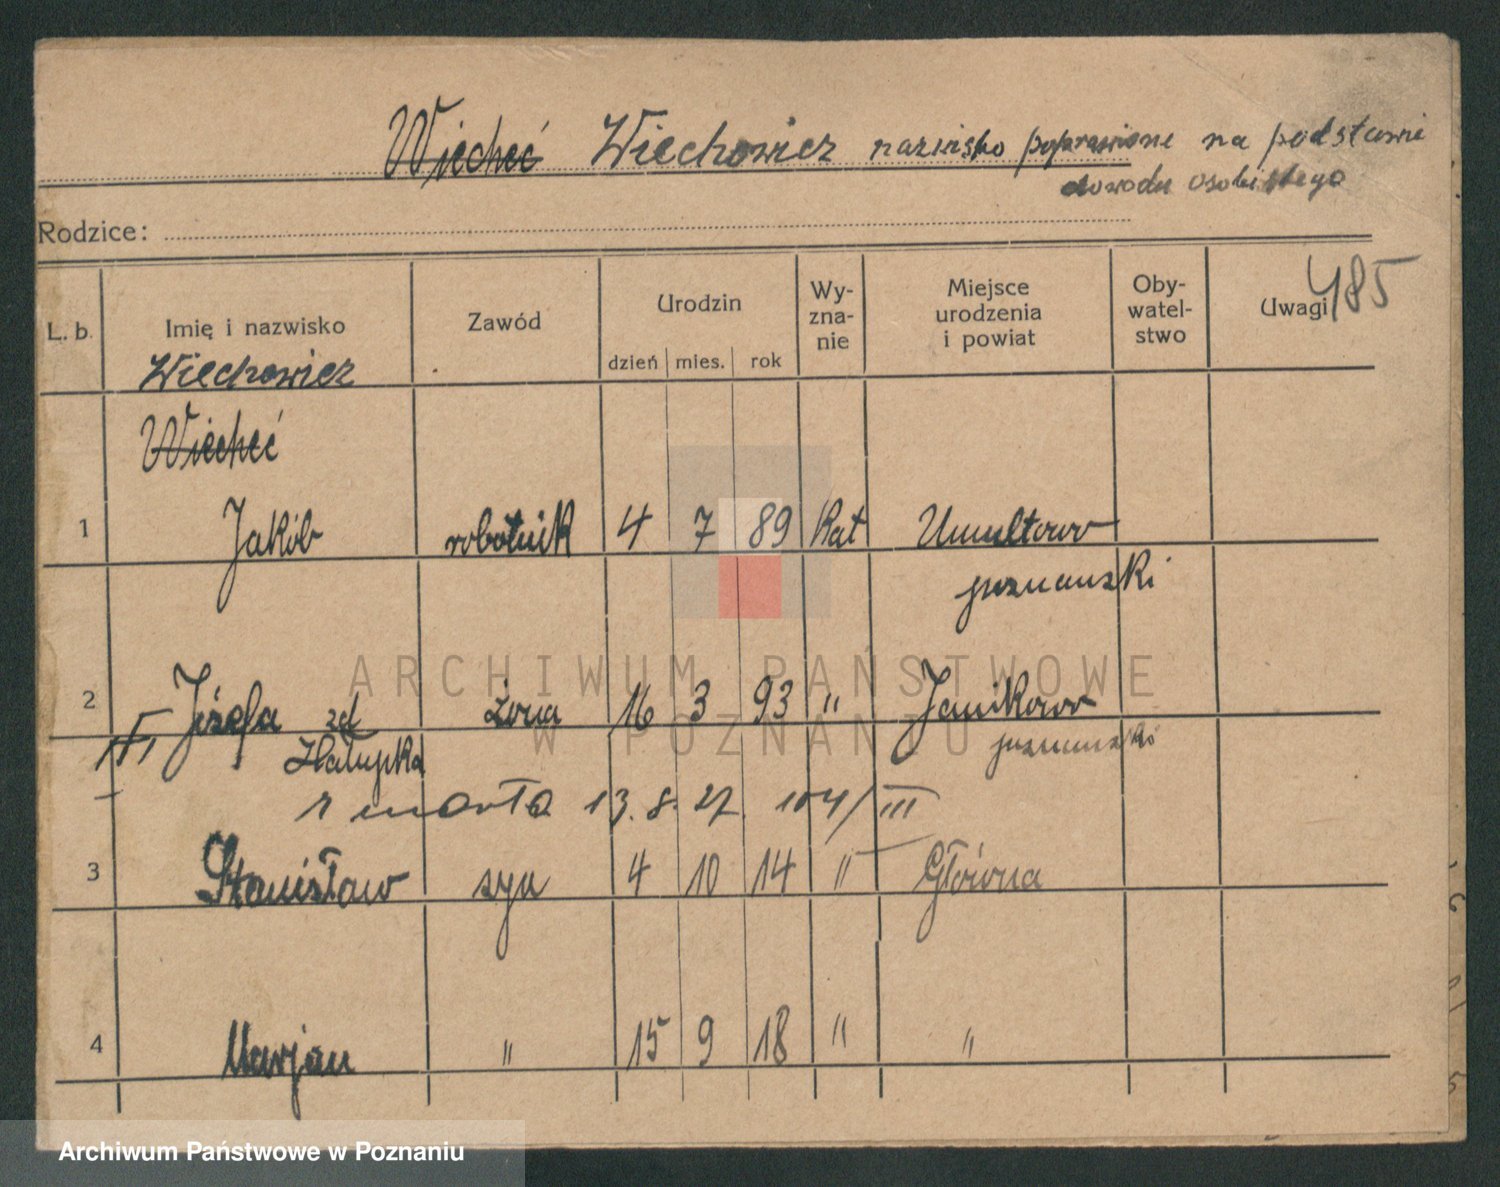 Wiecheć Wiechowicz nazwisko poprawione na podstawie
dowodu osobistego
Rodzice:
485
L. b. Imię i nazwisko Zawód Urodzin dzień mies. rok Wy-zna-nie Miejsce urodzenia i powiat Oby-watel-stwo Uwagi
Wiechowicz
Wiecheć
1 Jakób robotnik 4 7 89 kat Umultowo
poznański
2 Józefa zd żona 16 3 93 " Janikowo
poznański
zmarła 13. 8. 27. 104/III
3 Stanisław syn 4 10 14 " Główna
4 Marjan " 15 9 18 " "
ARCHIWUM PAŃSTWOWE
W POZNANIU
Archiwum Państwowe w Poznaniu